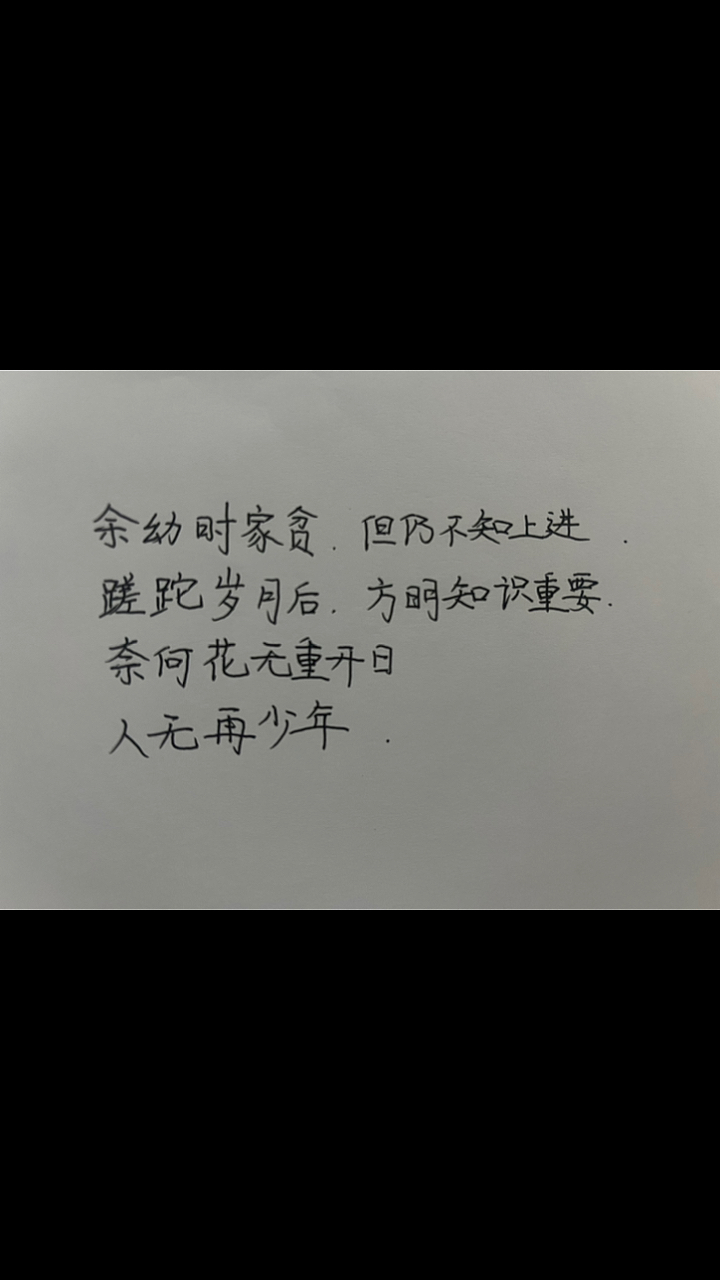 余幼时家贫.但仍不知上进.
蹉跎岁月后.方明知识重要.
奈何花无重开日
人无再少年.